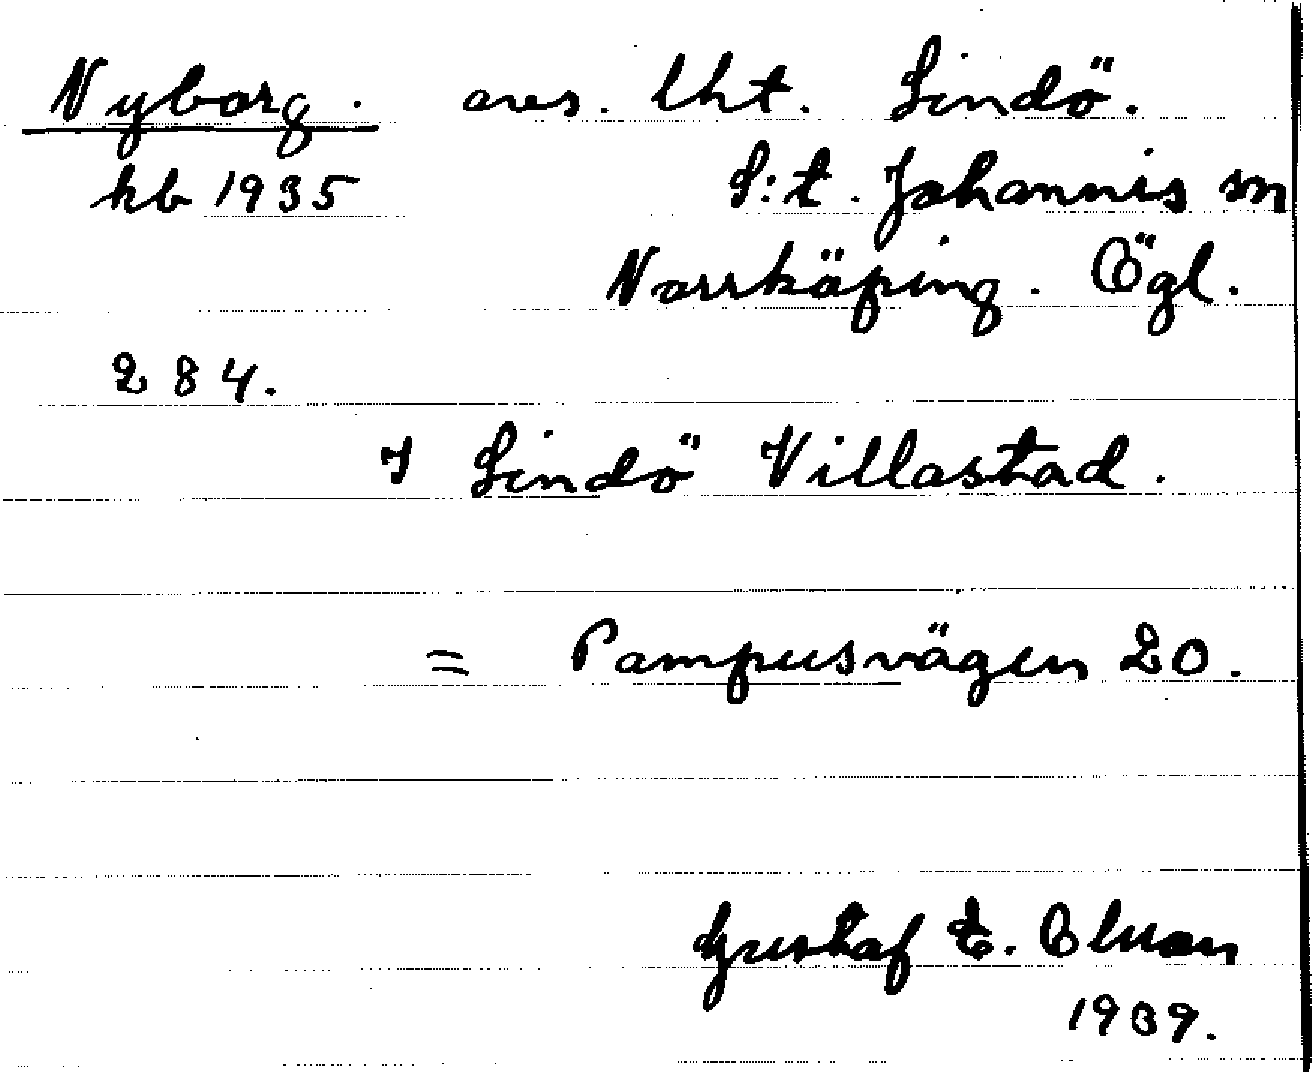 Nyborg. avs. lht. Lindö.
kb 1935 S:t. Johannis sn
Norrköping. Ögl.
284.
I Lindö Villastad.
= Pampusvägen 20.
Gustaf E.
1939.